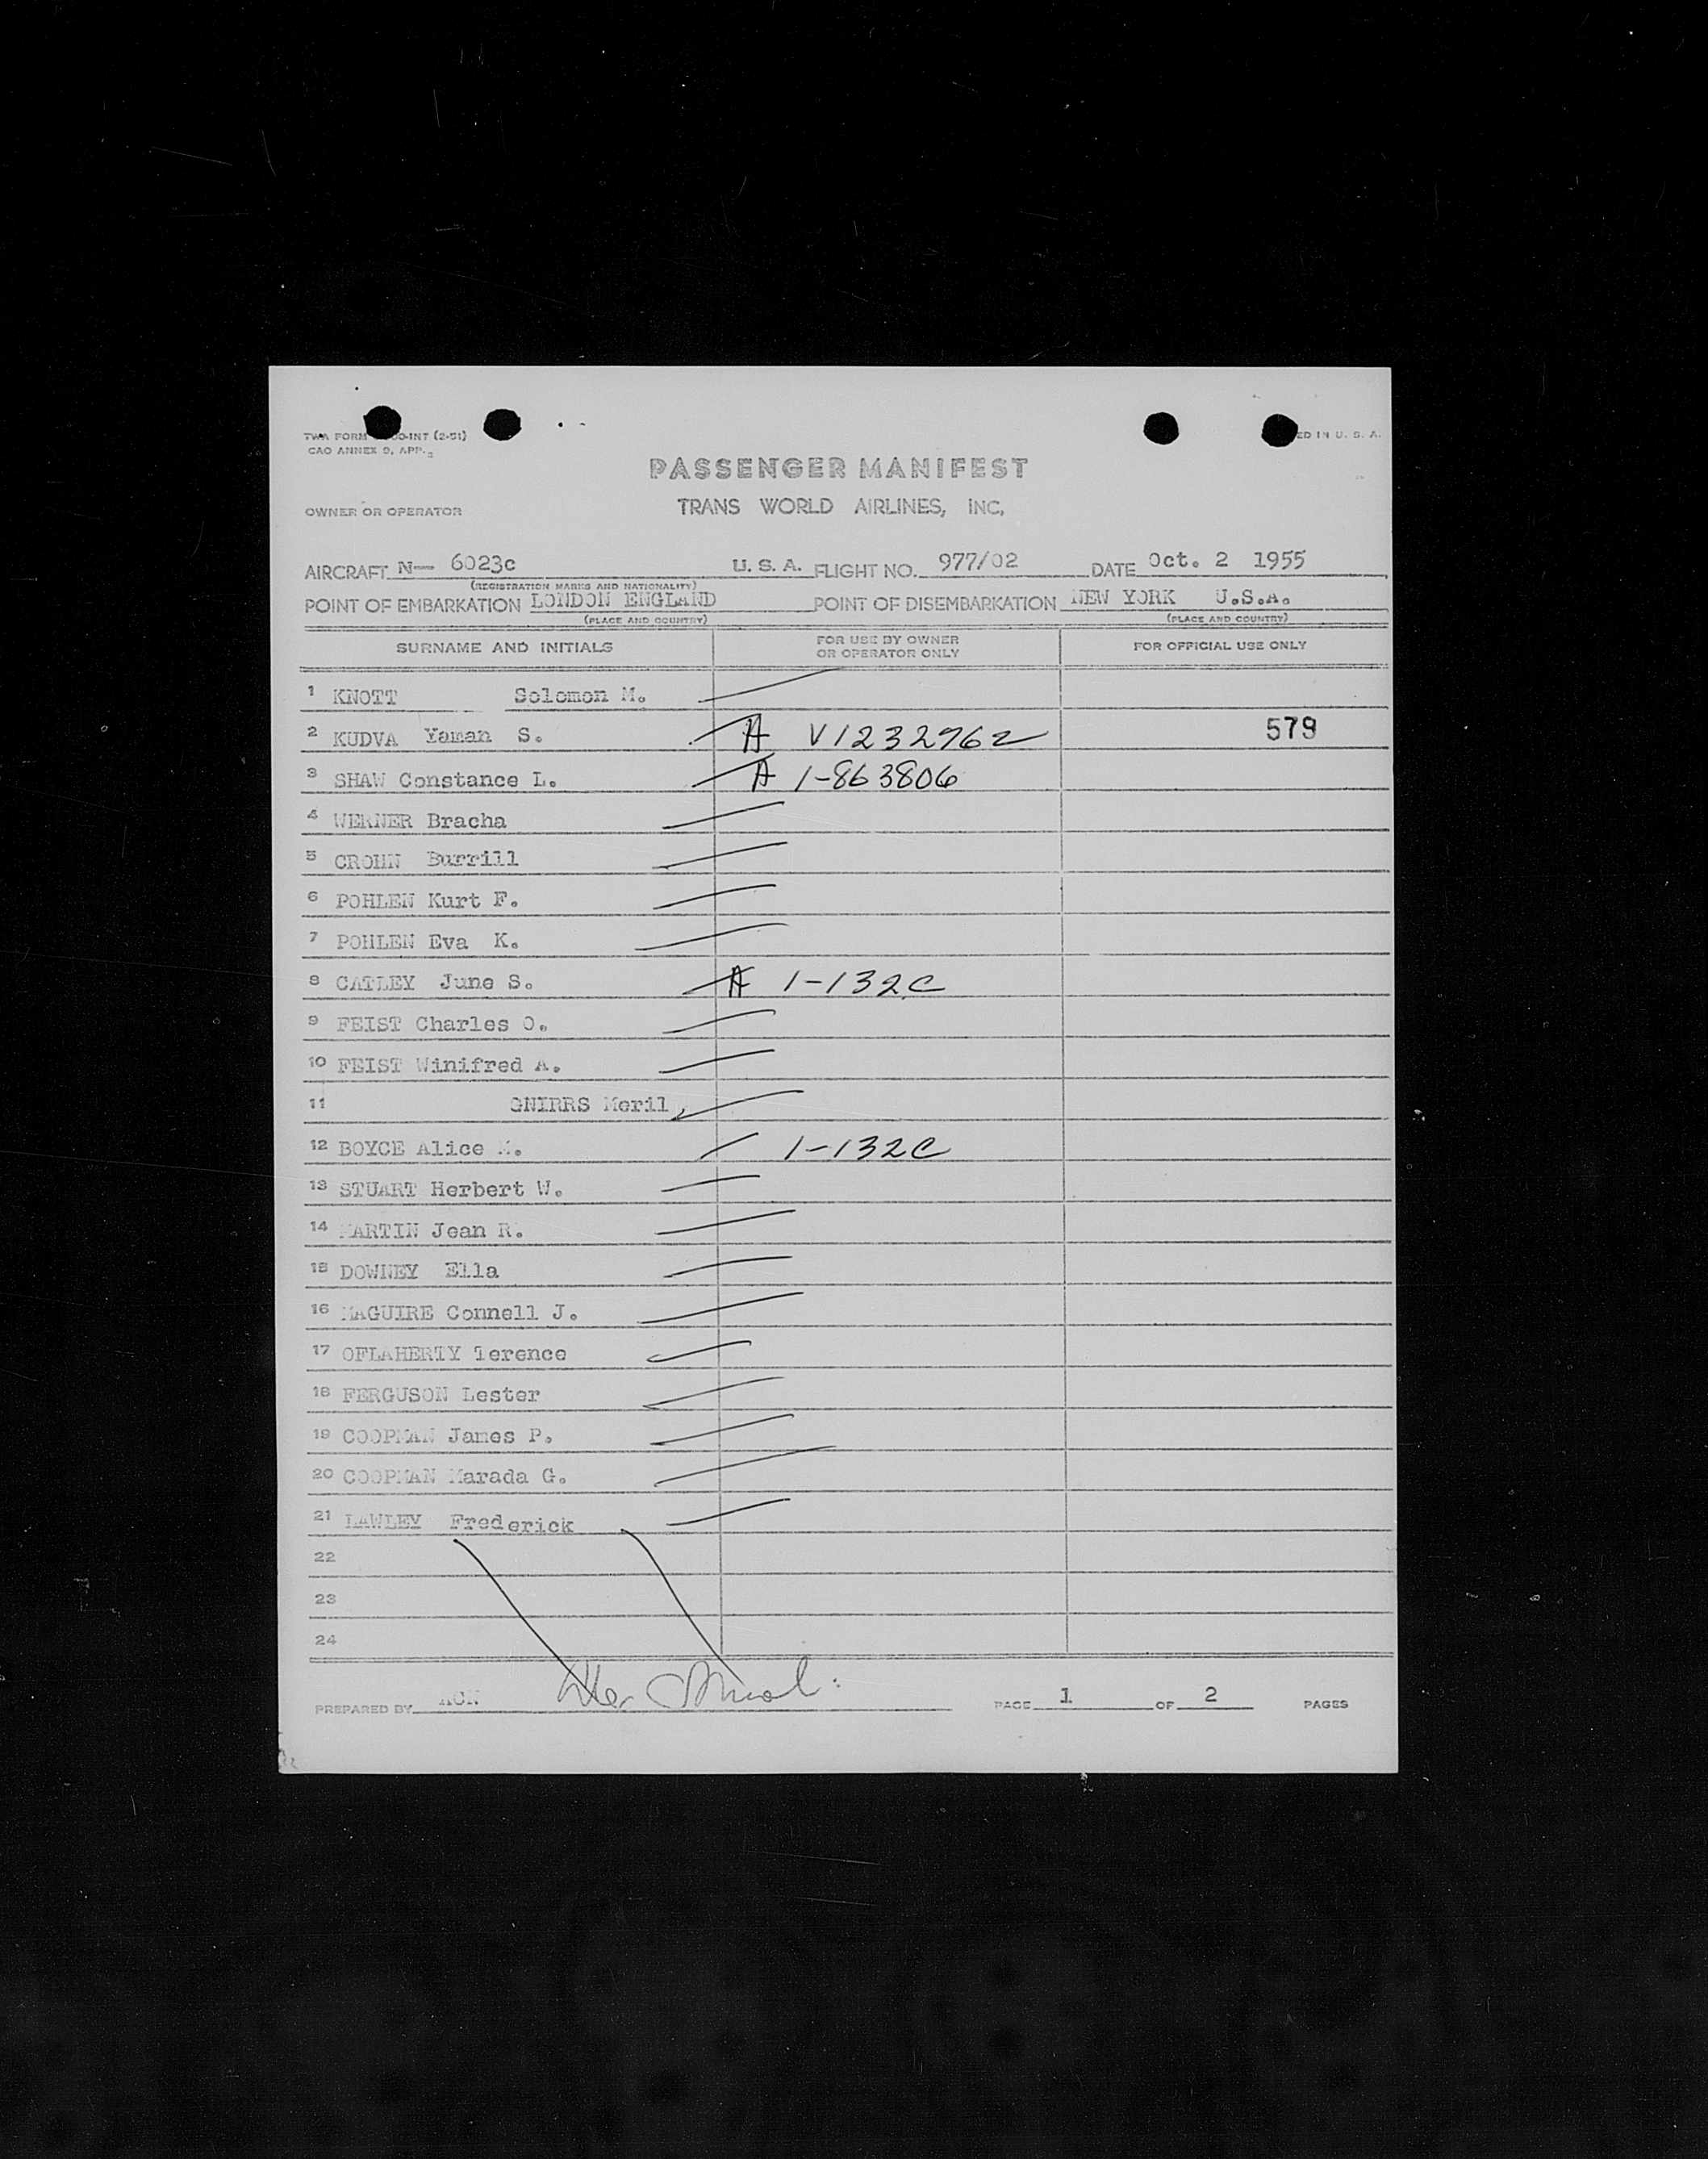 TWA FORM OO-INT (2-51)
CAO ANNEX 9, APP. 2
ED IN U. S. A.
PASSENGER MANIFEST
OWNER OR OPERATOR TRANS WORLD AIRLINES, INC.
AIRCRAFT N— 6023c U. S. A. FLIGHT NO. 977/02 DATE Oct. 2 1955
(REGISTRATION MARKS AND NATIONALITY)
POINT OF EMBARKATION LONDON ENGLAND POINT OF DISEMBARKATION NEW YORK U.S.A.
(PLACE AND COUNTRY) (PLACE AND COUNTRY)
SURNAME AND INITIALS FOR USE BY OWNER OR OPERATOR ONLY FOR OFFICIAL USE ONLY
1 KNOTT Solomon M.
2 KUDVA Yaman S. A V1232962 579
3 SHAW Constance L. A 1-863806
4 WERNER Bracha
5 CROHN Burrill
6 POHLEN Kurt F.
7 POHLEN Eva K.
8 CATLEY June S. A 1-132C
9 FEIST Charles O.
10 FEIST Winifred A.
11 GNIRRS Meril
12 BOYCE Alice M. 1-132C
13 STUART Herbert W.
14 MARTIN Jean R.
15 DOWNEY Ella
16 MAGUIRE Connell J.
17 OFLAHERTY Terence
18 FERGUSON Lester
19 COOPMAN James P.
20 COOPMAN Marada G.
21 LAWLEY Frederick
22
23
24
PREPARED BY ACN PAGE 1 OF 2 PAGES